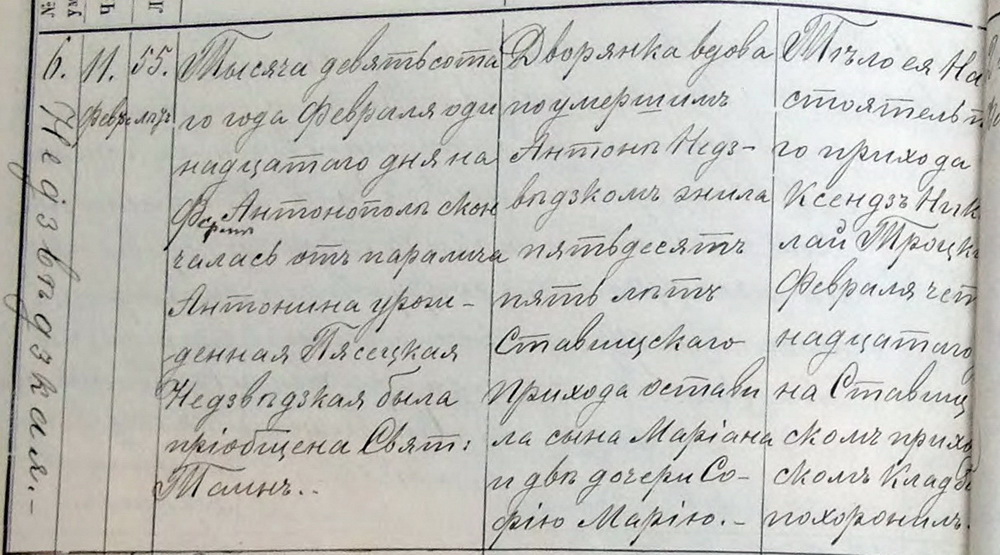 №
6. 11. 55.
Февраля лѣтъ
Недзвѣдзкая.-
Тысяча девятьсота
го года Февраля оди
надцатаго дня на
Антонополѣ скон
чалась отъ паралича
Антонина урож-
денная Пясецкая
Недзвѣдзкая была
пріобщена Свят:
Таинъ..
Дворянка вдова
по умершимъ
Антонѣ Недз-
вѣдзкомъ жила
пятьдесятъ
пять лѣтъ
Ставищскаго
Прихода остави
ла сына Маріана
и двѣ дочери Со-
фію Марію.-
Тѣло ея На
стоятель т
го прихода
Ксендзъ Ник
лай Троцк
Февраля чет
надцатаго
на Ставищ
скомъ прихо
скомъ Кладб
похоронилъ.